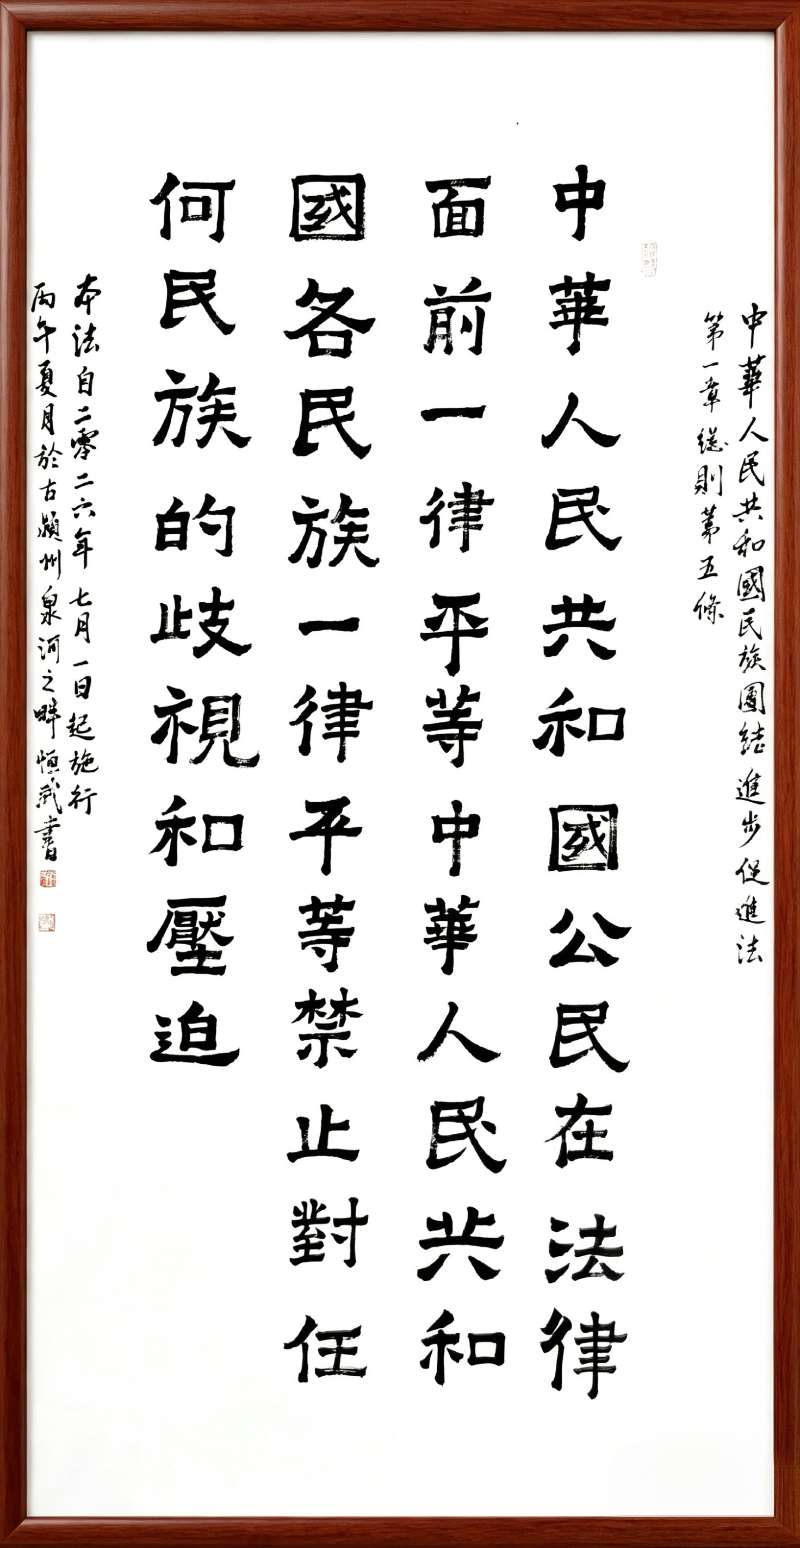 中華人民共和國民族團結進步促進法
第一章總則第五條
中華人民共和國公民在法律
面前一律平等中華人民共和
國各民族一律平等禁止對任
何民族的歧視和壓迫
本法自二零二六年七月一日起施行
丙午夏月於古潁州泉河之畔恒武書